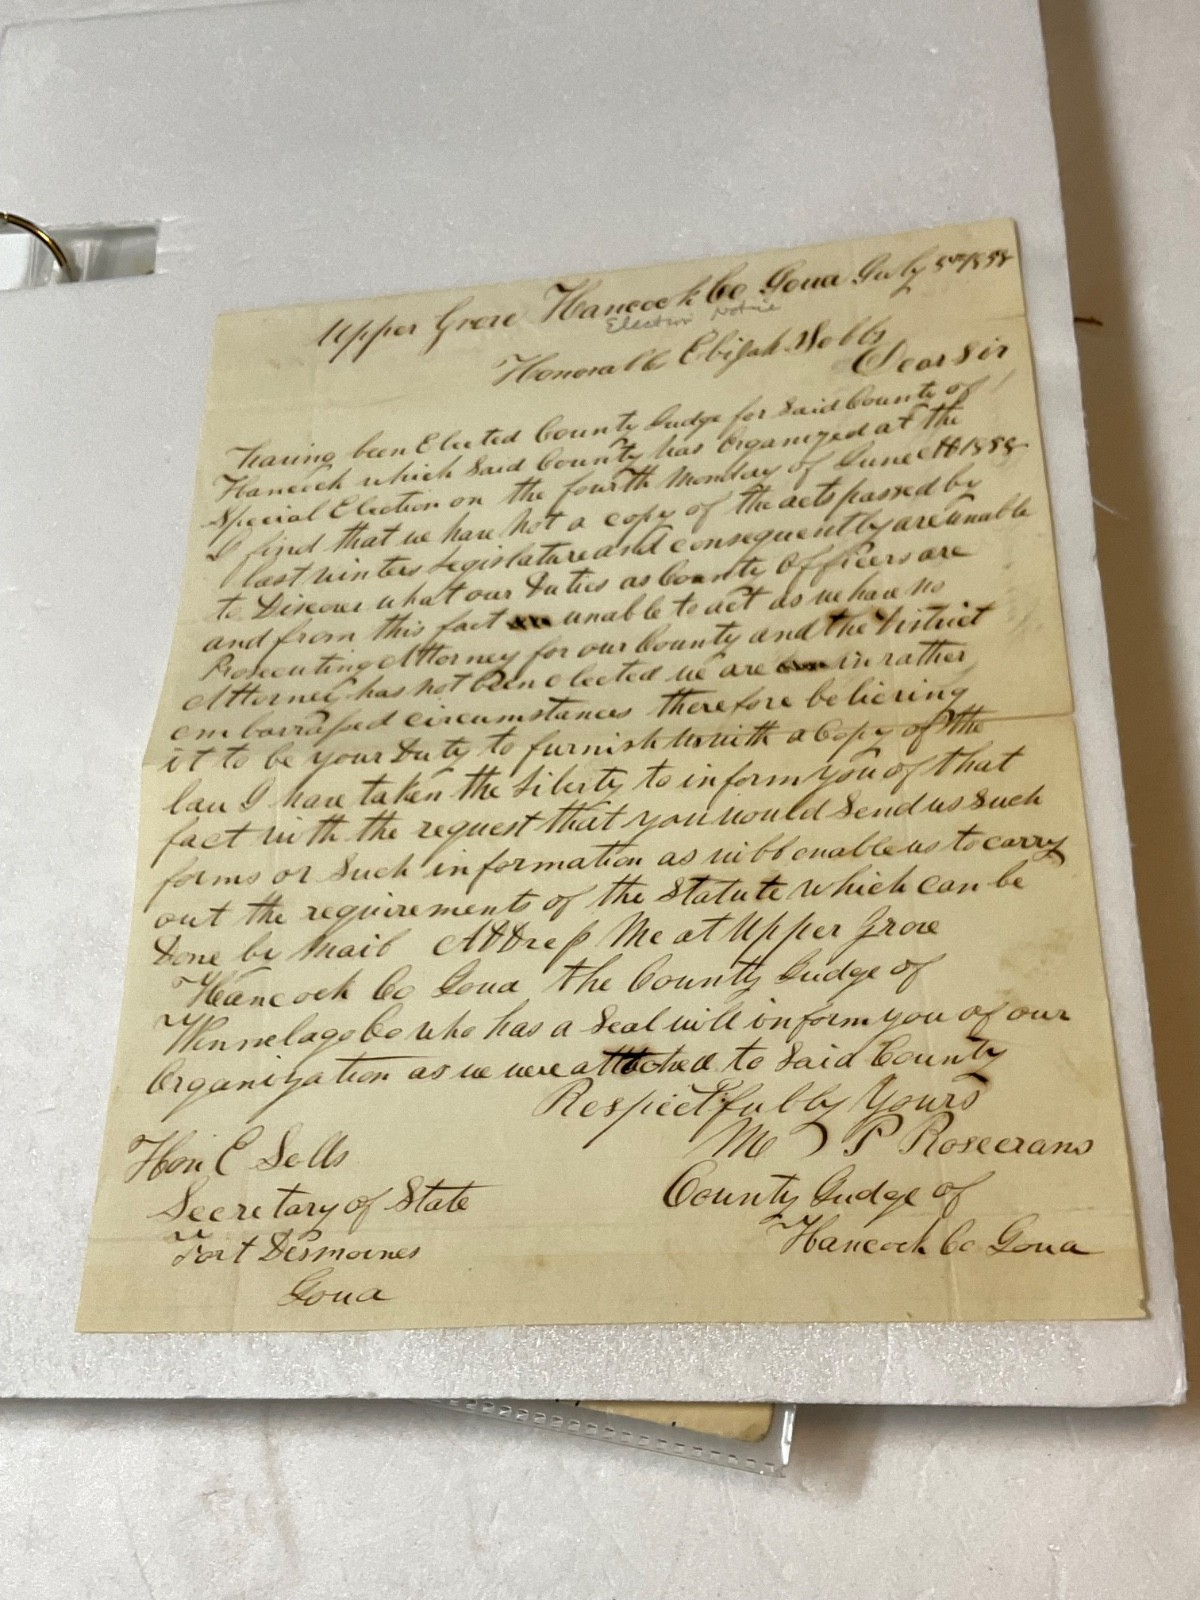 Upper Grove Hancock Co Iowa July 5th 1858
Election Notice
Honorable Elijah Sells
Dear Sir
Having been Elected County Judge for Said County of
Hancock which Said County has Organized at the
Special Election on the fourth Monday of June AD 1858
I find that we have Not a copy of the acts passed by
last winters Legislature and consequently are unable
to Discover what our Duties as County Officers are
and from this fact unable to act as we have no
Prosecuting Attorney for our County and the District
Attorney has not been elected we are in rather
embarrassed circumstances therefore believing
it to be your Duty to furnish us with a Copy of the
law I have taken the Liberty to inform you of that
fact with the request that you would Send us Such
forms or Such information as will enable us to carry
out the requirements of the Statute which can be
Done by Mail Address Me at Upper Grove
Hancock Co Iowa the County Judge of
Winnebago Co who has a Seal will inform you of our
Organization as we were attached to Said County
Respectfully Yours
M P Rosecrans
Hon E Sells
County Judge of
Secretary of State
Hancock Co Iowa
Fort Desmoines
Iowa